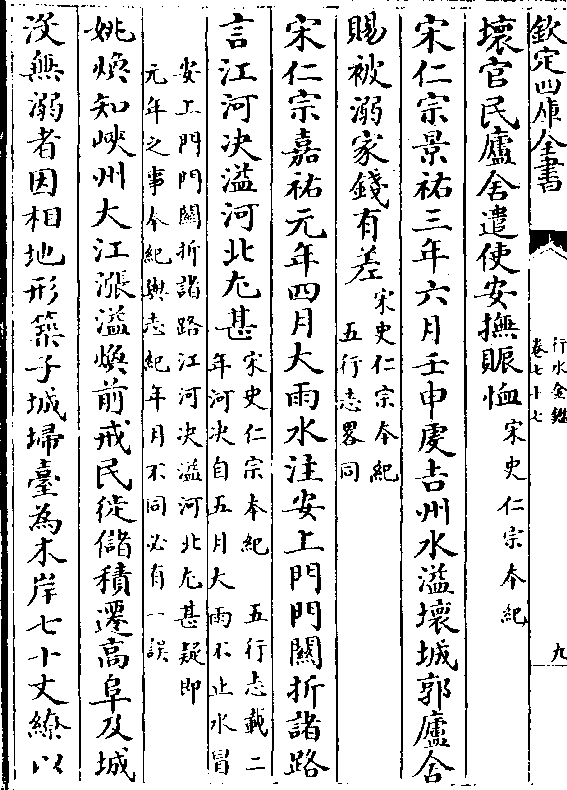 欽定四庫全書
行水金鑑
卷七十七
九
壞官民廬舍遣使安撫賑恤宋史仁宗本紀
宋仁宗景祐三年六月壬申虔吉州水溢壞城郭廬舍
賜被溺家錢有差宋史仁宗本紀
五行志畧同
宋仁宗嘉祐元年四月大雨水注安上門門關折諸路
言江河决溢河北尤甚宋史仁宗本紀 五行志載二
年河决自五月大雨不止水冒
安上門門關折諸路江河决溢河北尤甚疑即
元年之事本紀與志紀年月不同必有一誤
姚煥知峽州大江漲溢煥前戒民徙儲積遷高阜及城
没無溺者因相地形築子城埽臺為木岸七十丈繚以